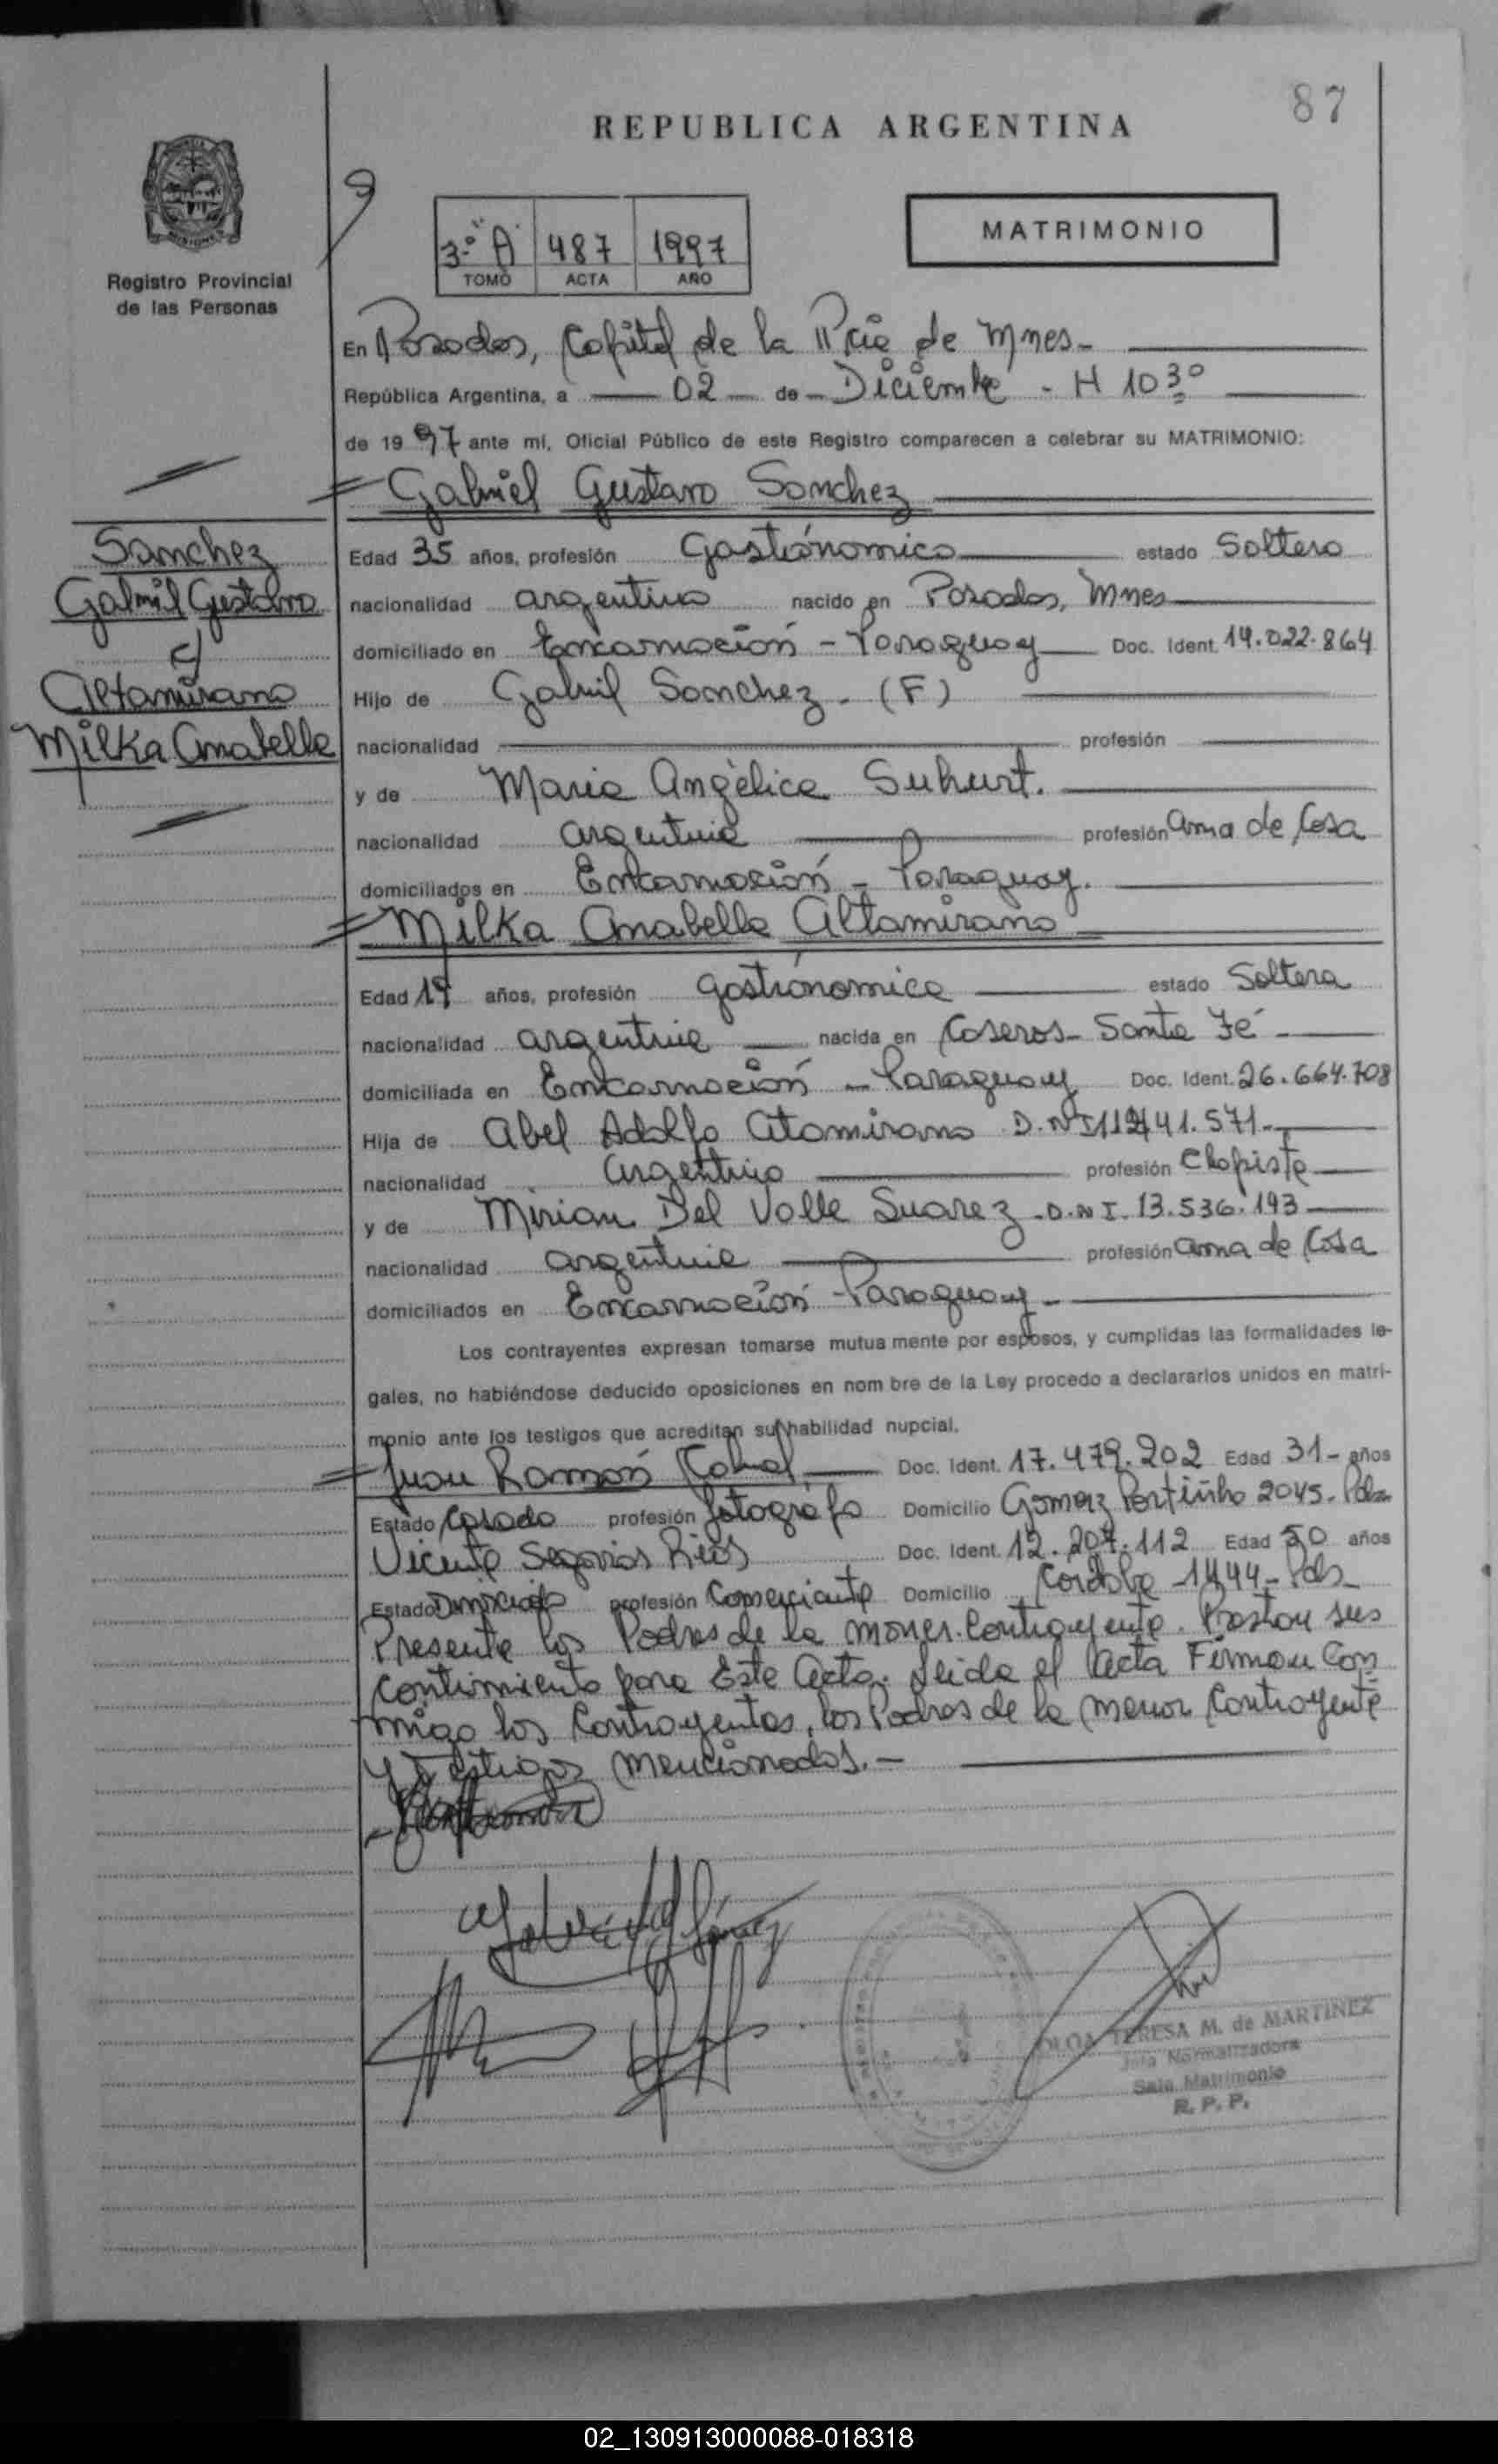 87
REPUBLICA ARGENTINA
MATRIMONIO
3º "A" 487 1997
TOMO ACTA AÑO
Registro Provincial
de las Personas
En Posadas, Capital de la Pcia de Mnes-
República Argentina, a 02 de Diciembre - H 10 30
de 1997 ante mí, Oficial Público de este Registro comparecen a celebrar su MATRIMONIO:
Gabriel Gustavo Sanchez
Sanchez
Gabriel Gustavo
c/
Altamirano
Milka Anabella
Edad 35 años, profesión Gastrónomico estado Soltero
nacionalidad argentino nacido en Posadas, Mnes
domiciliado en Encarnación - Paraguay Doc. Ident. 14.022.864
Hijo de Gabriel Sanchez - (F)
nacionalidad profesión
y de Maria Angélica Suhurt.
nacionalidad argentina profesión ama de Casa
domiciliados en Encarnación - Paraguay.
Milka Anabella Altamirano
Edad años, profesión gastrónomica estado Soltera
nacionalidad argentina nacida en Caseros - Santa Fé
domiciliada en Encarnación - Paraguay Doc. Ident. 26.664.708
Hija de Abel Adolfo Atamirano D.N.I
nacionalidad Argentino profesión Chapista
y de Mirian Del Valle Suarez - D.N.I. 13.536.193
nacionalidad argentina profesión ama de Casa
domiciliados en Encarnación - Paraguay
Los contrayentes expresan tomarse mutua mente por esposos, y cumplidas las formalidades le-
gales, no habiéndose deducido oposiciones en nom bre de la Ley procedo a declararlos unidos en matri-
monio ante los testigos que acreditan su habilidad nupcial.
Juan Ramón Cabral Doc. Ident. 17.479.202 Edad 31 - años
Estado Casado profesión fotográfo Domicilio Gomez Portinho 2045 - Pdas
Vicente Segovia Rios Doc. Ident. 12.207.112 Edad 50 años
Estado Divorciado profesión Comerciante Domicilio Cordoba 1444 - Pds
Presente los Padres de la menor Contrayente. Prestan sus
Contimiento para Este Acto. Leida el Acta Firman Con
migo los Contrayentes, los Padres de la menor Contrayente
y Testigos mencionados. -
OLGA TERESA M. de MARTINEZ
Jefa Normalizadora
Sala Matrimonio
R. P. P.
02_130913000088-018318